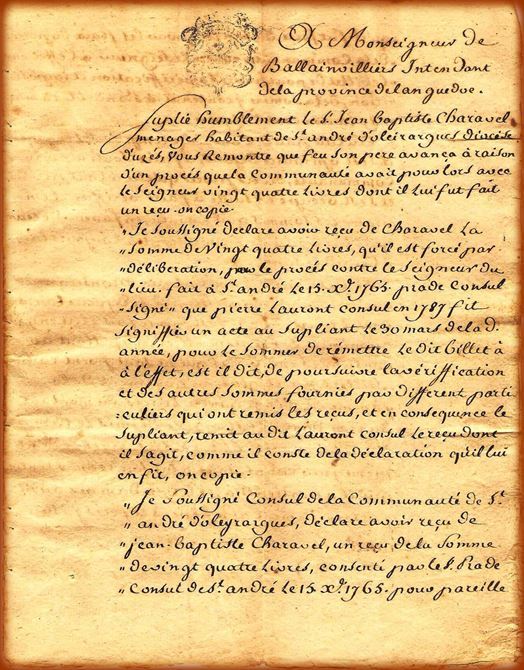 A Monseigneur de
Ballainvilliers Intendant
de la province de languedoc.
Suplie humblement le Sr. Jean Baptiste Charavel
menager habitant de St. andré d'oleirargues diocèse
d'uzés, Vous Remontre que feu son pere avança à raison
d'un procés que la Communauté avait pour lors avec
le Seigneur vingt quatre livres dont il lui fut fait
un reçu. on copie.
" Je soussigné declare avoir reçu de Charavel La
" Somme de Vingt quatre Livres, qu'il est forcé par
" déliberation, pour le procés contre le Seigneur du
" lieu. fait à St. andré le 15. Xbre. 1765. prade Consul
" Signé " que pierre Lauront consul en 1787 fit
Signiffier un acte au Supliant le 30 mars de la d.
année, pour le Sommer de rémettre le dit billet à
à l'effet, est il dit, de poursuivre la vériffication
et des autres Sommes fournies par different parti
=culiers qui ont remis les reçus, et en consequence le
Supliant, remit au dit Lauront consul le reçu dont
il s'agit, comme il conste de la déclaration qu'il lui
en fit, on copie.
" Je Soussigné Consul de la Communauté de St.
" andré d'oleyrargues, déclare avoir reçu de
" jean-baptiste Charavel, un reçu de la Somme
" de vingt quatre livres, consenti par le S. Prade
" Consul de St. andré le 15 Xbre. 1765. pour pareille